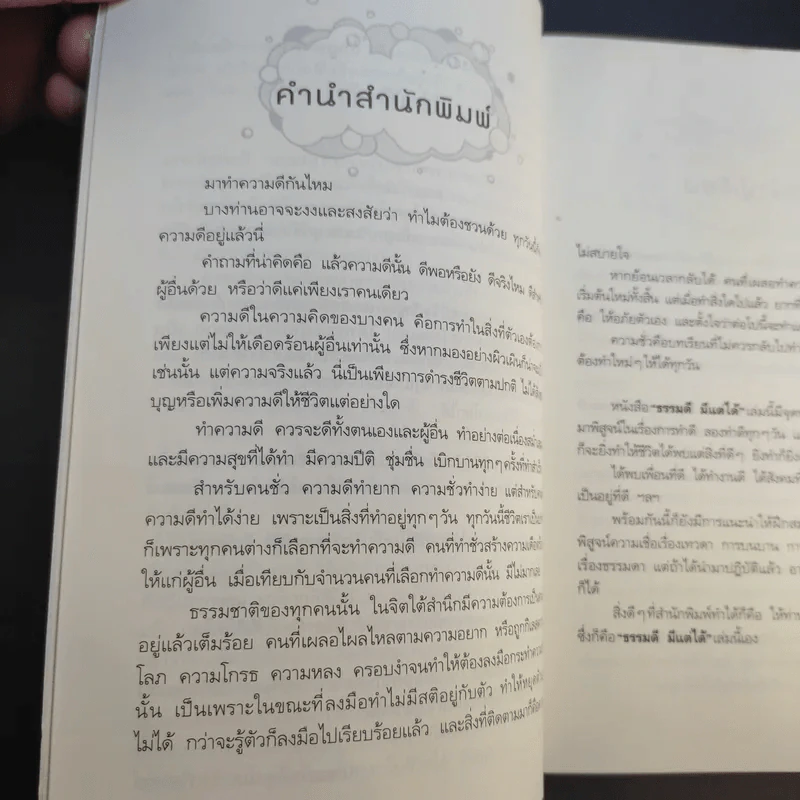 คำนำสำนักพิมพ์
มาทำความดีกันไหม
บางท่านอาจจะงงและสงสัยว่า ทำไมต้องชวนด้วย
ความดีอยู่แล้วนี่
คำถามที่น่าคิดคือ แล้วความดีนั้น ดีพอหรือยัง ดีจริงไหม
ผู้อื่นด้วย หรือว่าดีแค่เพียงเราคนเดียว
ความดีในความคิดของบางคน คือการทำในสิ่งที่ตัวเอง
เพียงแต่ไม่ให้เดือดร้อนผู้อื่นเท่านั้น ซึ่งหากมองอย่างผิวเผิน
เช่นนั้น แต่ความจริงแล้ว นี่เป็นเพียงการดำรงชีวิตตามปกติ
บุญหรือเพิ่มความดีให้ชีวิตแต่อย่างใด
ทำความดี ควรจะดีทั้งตนเองและผู้อื่น ทำอย่างต่อเนื่อง
และมีความสุขที่ได้ทำ มีความปีติ ชุ่มชื่น เบิกบานทุกๆครั้งที่
สำหรับคนชั่ว ความดีทำยาก ความชั่วทำง่าย แต่สำหรับ
ความดีทำได้ง่าย เพราะเป็นสิ่งที่ทำอยู่ทุกๆวัน ทุกวันนี้ชีวิตเรา
ก็เพราะทุกคนต่างก็เลือกที่จะทำความดี คนที่ทำชั่วสร้างความ
ให้แก่ผู้อื่น เมื่อเทียบกับจำนวนคนที่เลือกทำความดีนั้น มีไม่มากเลย
ธรรมชาติของทุกคนนั้น ในจิตใต้สำนึกมีความต้องการเป็น
อยู่แล้วเต็มร้อย คนที่เผลอไผลไหลตามความอยาก หรือถูกกิเลส
โลภ ความโกรธ ความหลง ครอบงำจนทำให้ต้องลงมือกระทำ
นั้น เป็นเพราะในขณะที่ลงมือทำไม่มีสติอยู่กับตัว ทำให้หยุด
ไม่ได้ กว่าจะรู้ตัวก็ลงมือไปเรียบร้อยแล้ว และสิ่งที่ติดตามมาก็คือ
ไม่สบายใจ
หากย้อนเวลากลับได้ คนที่เผลอทำ
เริ่มต้นใหม่ทั้งสิ้น แต่เมื่อทำสิ่งใดไปแล้ว
คือ ให้อภัยตัวเอง และตั้งใจว่าต่อไปนี้จะทำ
ความชั่วคือบทเรียนที่ไม่ควรกลับไปทำ
ต้องทำใหม่ๆให้ได้ทุกวัน
หนังสือ "ธรรมดี มีแต่ได้" เล่มนี้มี
มาพิสูจน์ในเรื่องการทำดี ลองทำดีทุกๆวัน
ก็จะยิ่งทำให้ชีวิตได้พบแต่สิ่งที่ดีๆ ยิ่งทำก็ยิ่ง
ได้พบเพื่อนที่ดี ได้ทำงานดี ได้สังคม
เป็นอยู่ที่ดี ฯลฯ
พร้อมกันนี้ก็ยังมีการแนะนำให้ฝึก
พิสูจน์ความเชื่อเรื่องเทวดา การบนบาน
เรื่องธรรมดา แต่ถ้าได้นำมาปฏิบัติแล้ว
ก็ได้
สิ่งดีๆที่สำนักพิมพ์ทำได้ก็คือ ให้
ซึ่งก็คือ "ธรรมดี มีแต่ได้" เล่มนี้เอง